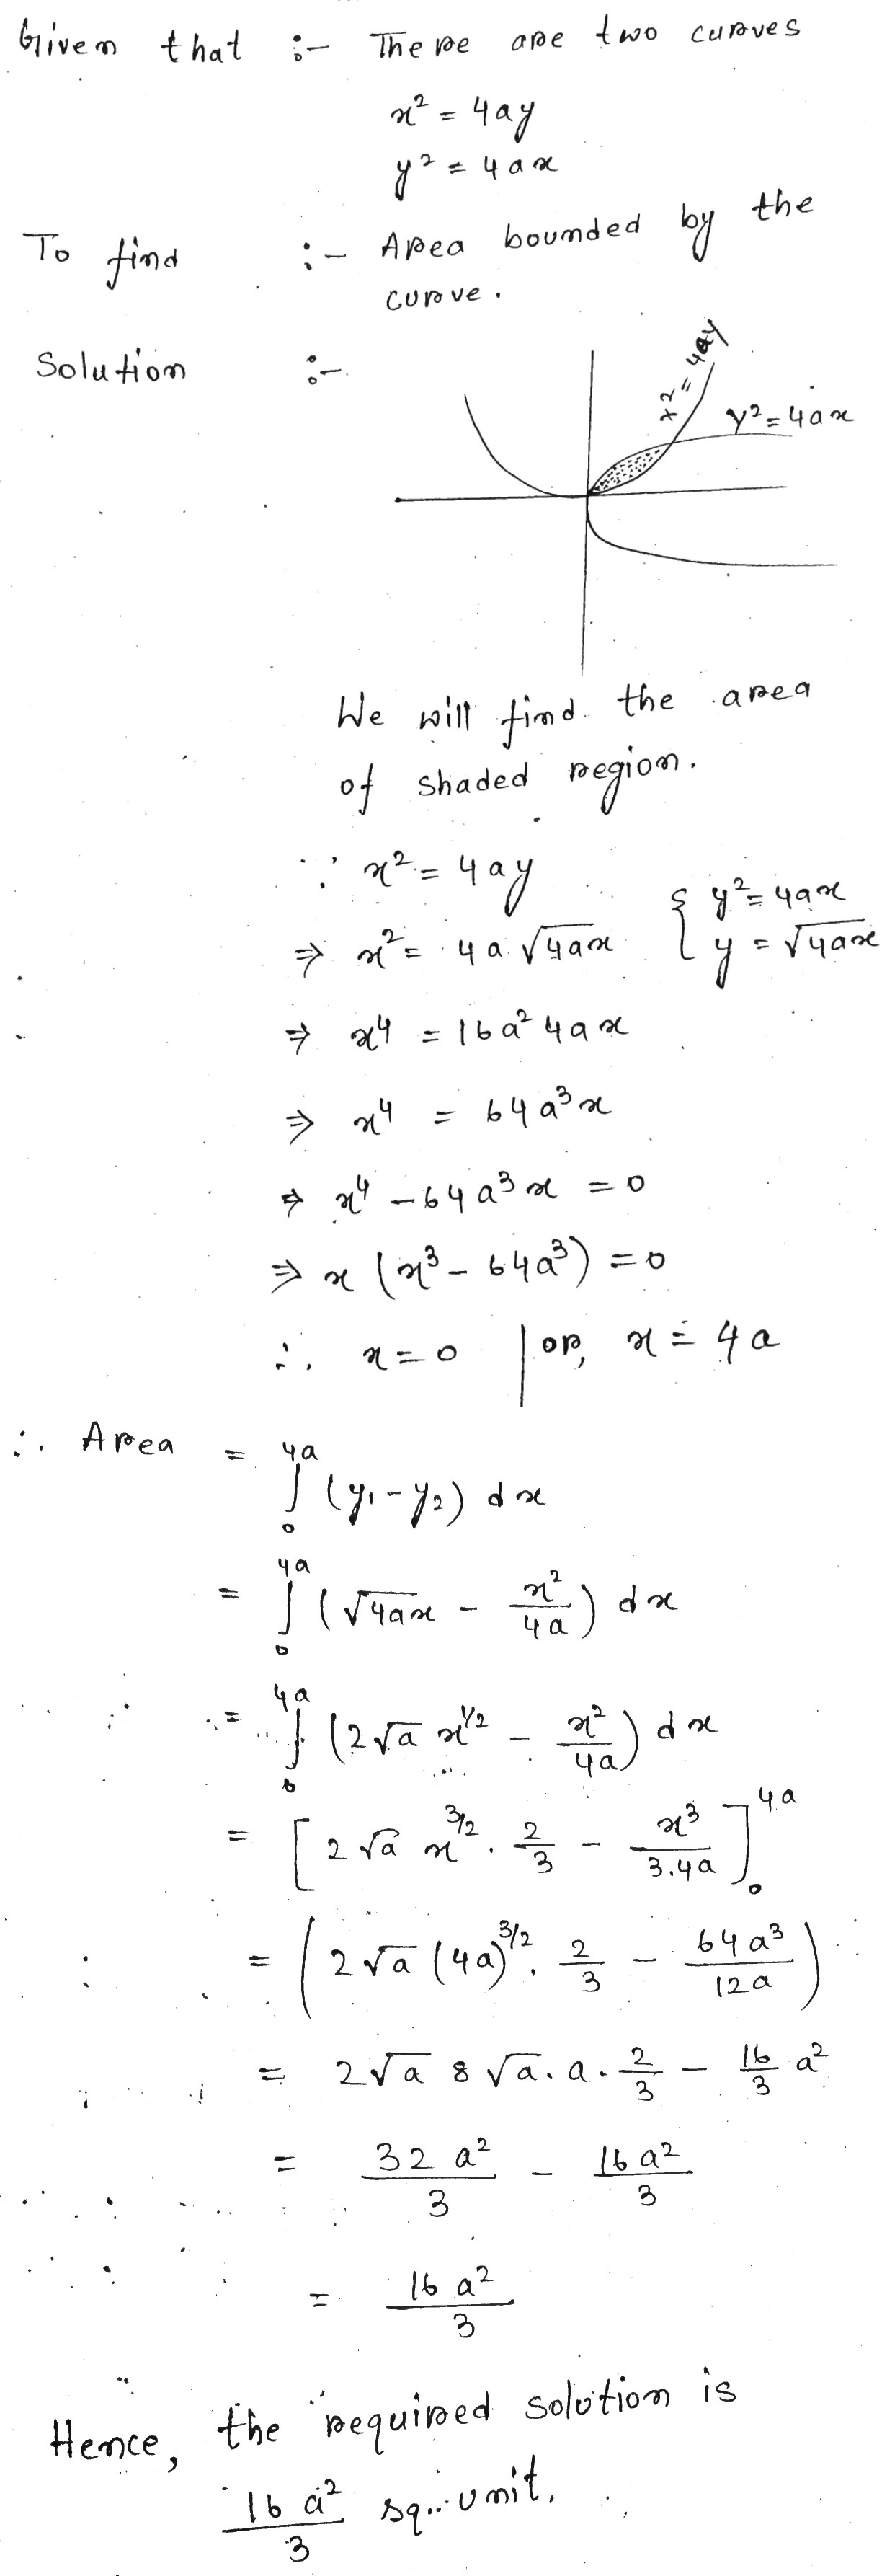 Given that :- There are two curves
x² = 4ay
y² = 4ax
To find :- Area bounded by the
curve.
Solution :-
x² = 4ay
y² = 4ax
We will find the area
of shaded region.
∵ x² = 4ay
⇒ x² = 4a √4ax { y² = 4ax
y = √4ax
⇒ x⁴ = 16a² 4ax
⇒ x⁴ = 64a³x
⇒ x⁴ - 64a³x = 0
⇒ x (x³ - 64a³) = 0
∴ x = 0 | or, x = 4a
∴ Area = ∫₀⁴ᵃ (y₁ - y₂) dx
= ∫₀⁴ᵃ (√4ax - x²/4a) dx
= ∫₀⁴ᵃ (2√a x^1/2 - x²/4a) dx
= [2√a x^3/2 . 2/3 - x³/3.4a]₀⁴ᵃ
= (2√a (4a)^3/2 . 2/3 - 64a³/12a)
= 2√a 8√a . a . 2/3 - 16/3 a²
= 32a²/3 - 16a²/3
= 16a²/3
Hence, the required solution is
16a²/3 sq. unit.